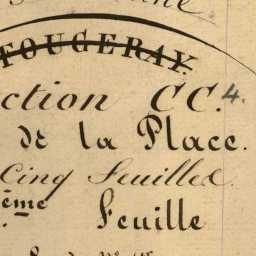 FOUGERAY.
ction CC.4.
de la Place.
Cinq Feuilles.
ème Feuille